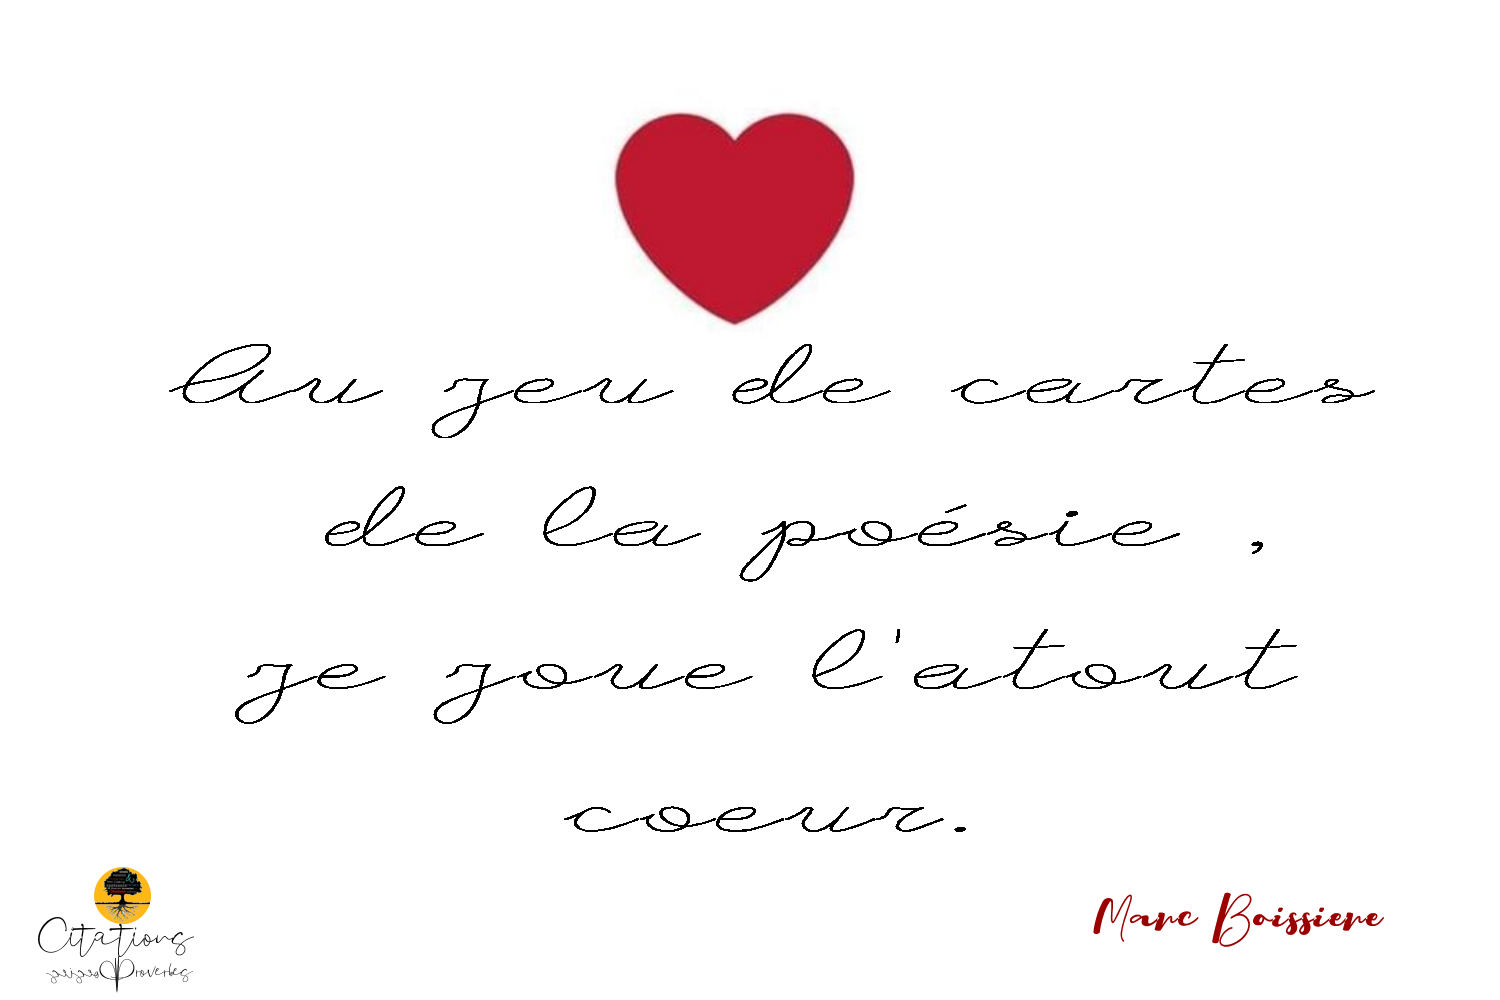 Au jeu de cartes
de la poésie ,
je joue l'atout
coeur.
Marc Boissiere
Citations
Proverbes